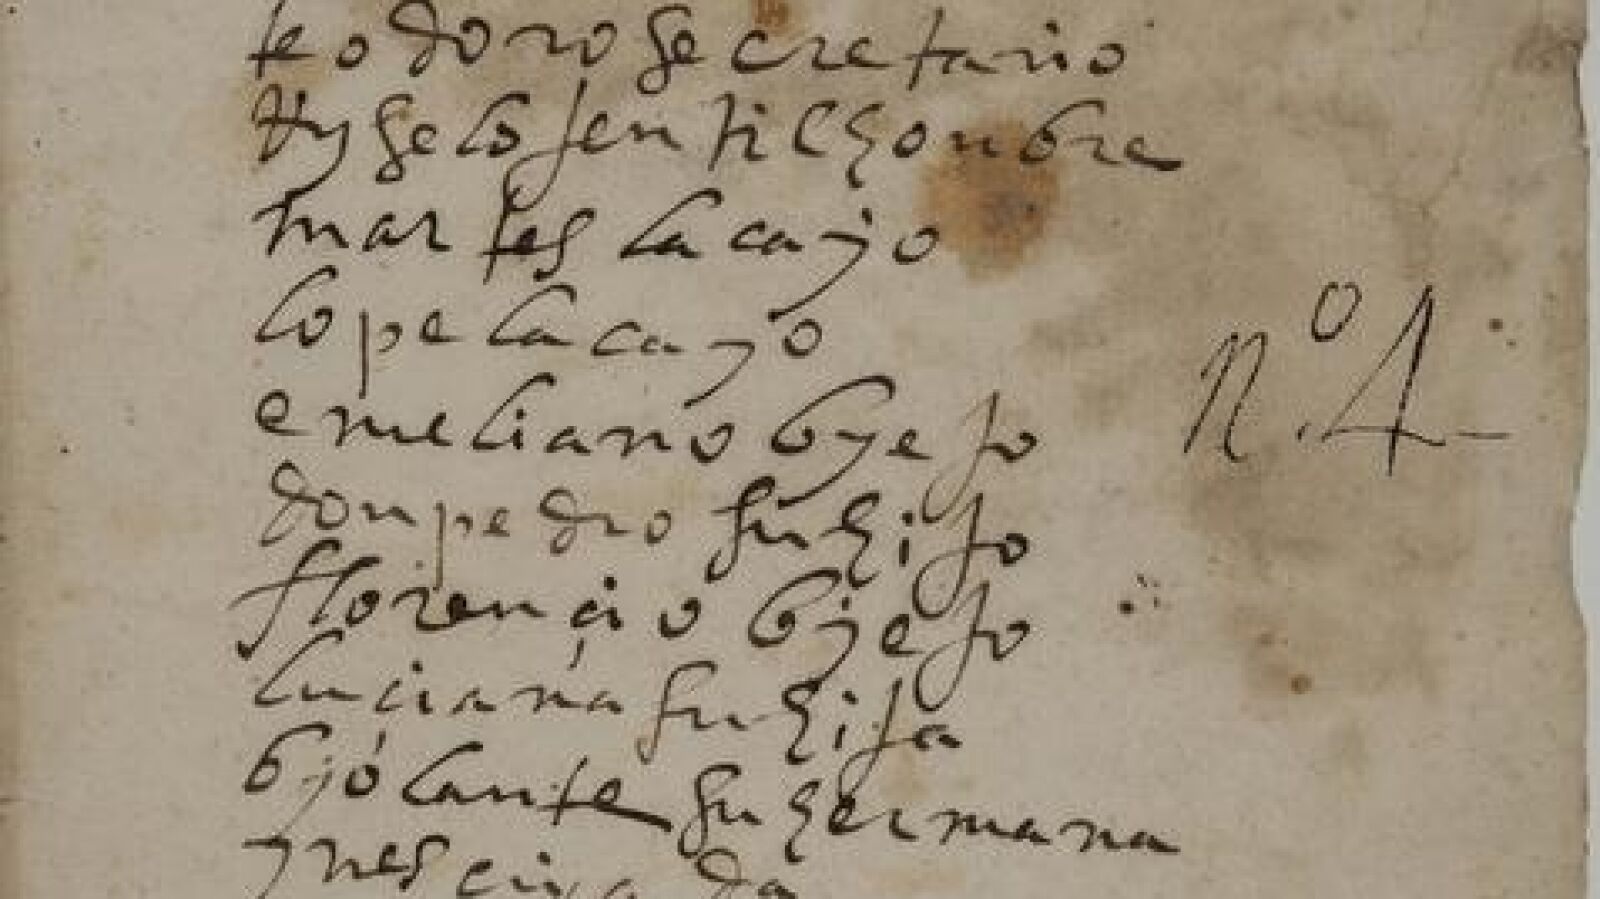 teodoro secretario
tyselo jentilhonbre
martes lacayo
lope lacayo
emeliano byejo
don pedro su hijo
florençio byejo
luçiana su hija
byolante su hermana
ynes criada
nº 4